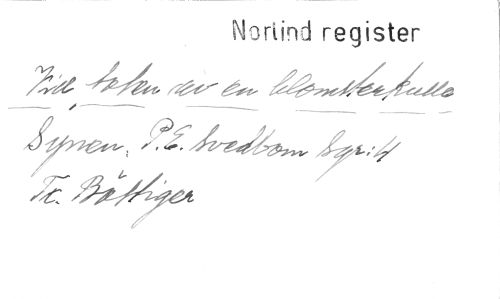 Norlind register
Vid foten av en blomsterkulle
Synen. P.E. Svedbom Sgr:4
Tc. Böttiger